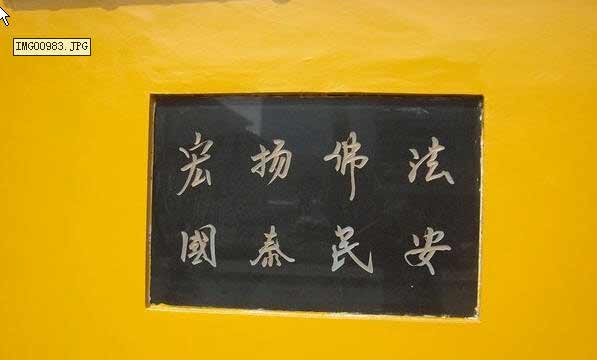 IMG00983.JPG
宏扬佛法
國泰民安